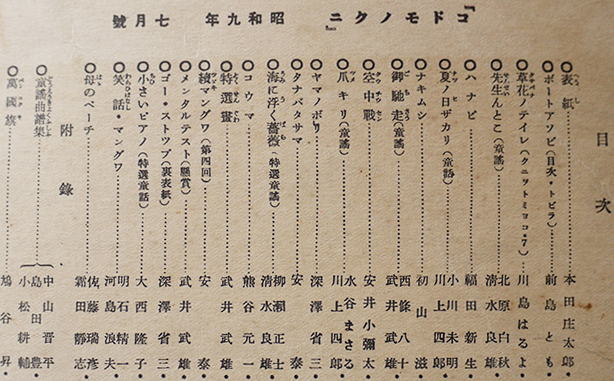 『コドモノクニ』 昭和九年 七月號
目次
○表紙……本田庄太郎
○ボートアソビ(目次・トビラ)……前島とも
○草花ノテイレ(クニツトミヨコ・7)……川島はるよ
○先生んとこ(童謠)……北原白秋
清水良雄
○ハナビ……福田新生
○夏ノ日ザカリ(童話)……小川未明
川上四郎
○ナキムシ……初山滋
○御馳走(童謠)……西條八十
武井武雄
○空中戰……安井小彌太
○爪キリ(童謠)……水谷まさる
川上四郎
○ヤマノボリ……深澤省三
○タナバタサマ……安泰
○海に浮く薔薇(特選童謠)……柳瀬正士
清水良雄
○コウマ……熊谷元一
○特選畫……武井武雄
○續マングワ(第四囘)……安泰
○メンタルテスト(懸賞)……武井武雄
○ゴー・ストツプ(裏表紙)……深澤省三
○小さいピアノ(特選童話)……大西隆子
○笑話・マングワ……明石精一
河島浪夫
○母のページ……佐藤瑞彦
霜田静志
附錄
○童謠曲譜集……中山晋平
島田豊
小松耕輔
○萬國旗……鳩谷昇